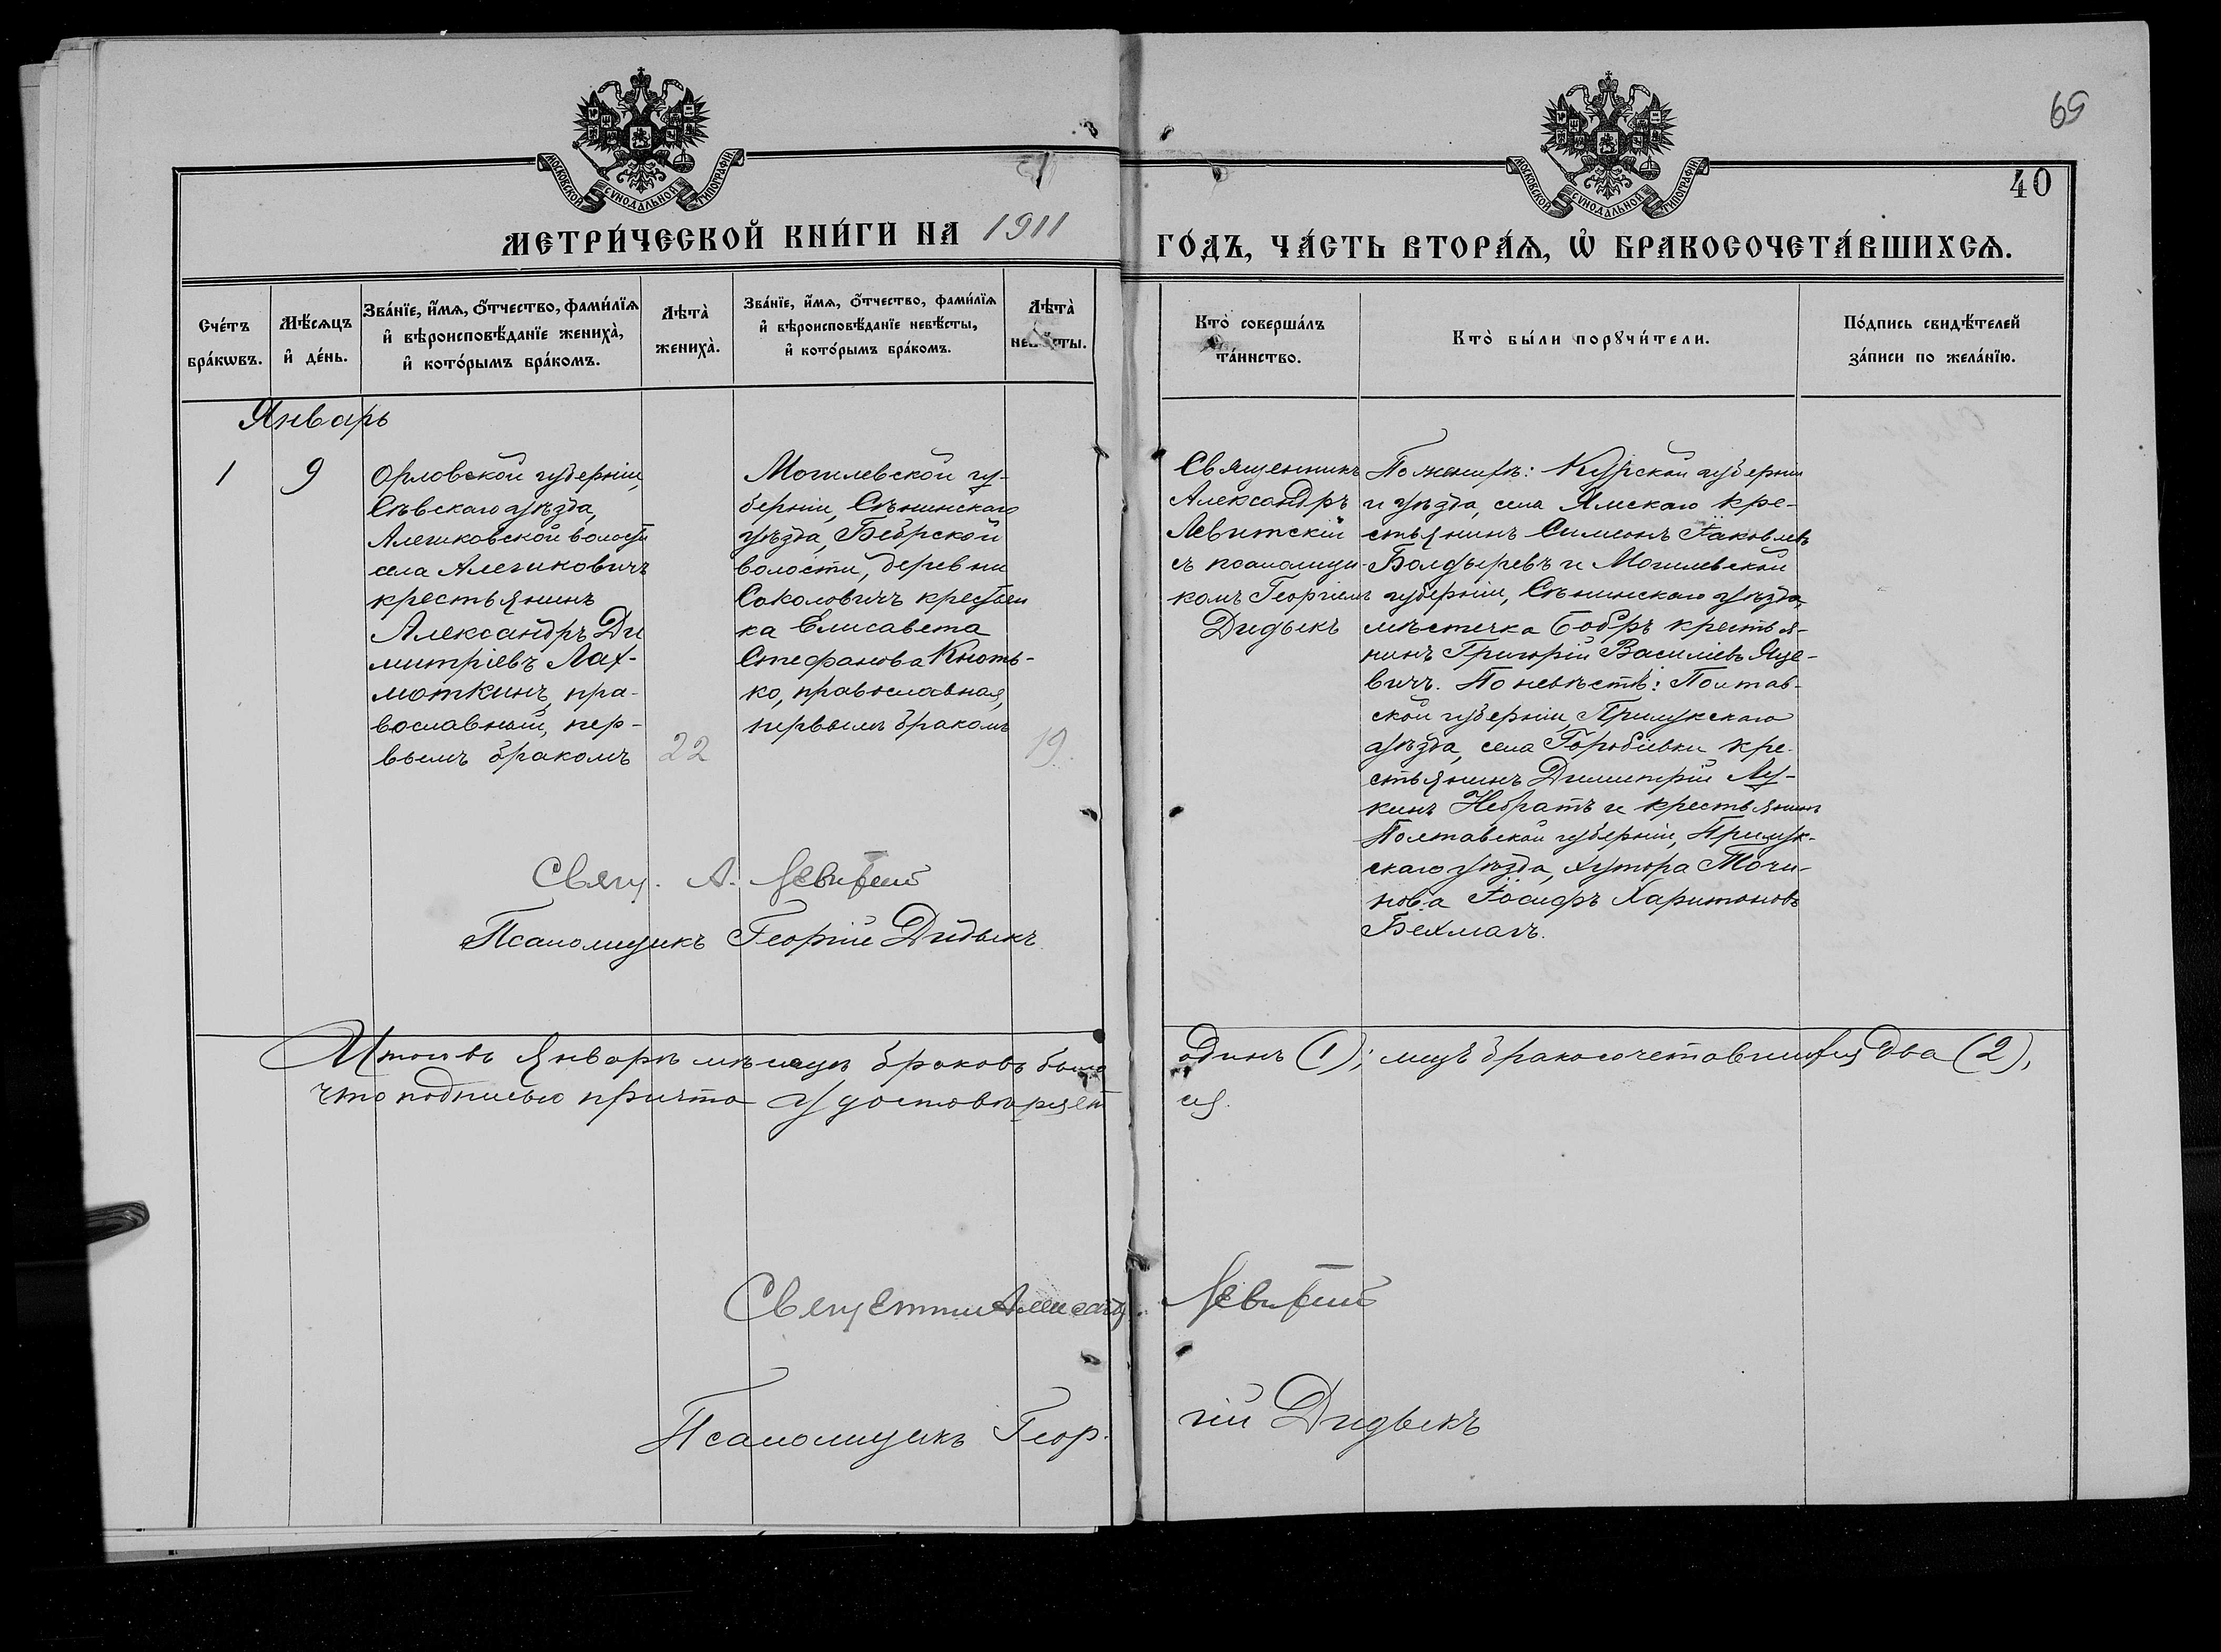 69
МОСКОВСКОЙ СУНОДАЛЬНОЙ ТИПОГРАФІИ
МОСКОВСКОЙ СУНОДАЛЬНОЙ ТИПОГРАФІИ
40
МЕТРИ́ЧЕСКОЙ КНИ́ГИ НА 1911
ГО́ДЪ, ЧА́СТЬ ВТОРА́Ѧ, Ѡ҆ БРАКОСОЧЕТА́ВШИХСѦ.
Сче́тъ
бра́кѡвъ.
Мѣ́сѧцъ
и҆ де́нь.
Зва́нїе, и҆́мѧ, ѻ҆́тчество, фами́лїѧ
и҆ вѣроисповѣ́данїе жениха̀,
и҆ кото́рымъ бра́комъ.
Лѣта̀
жениха̀.
Зва́нїе, и҆́мѧ, ѻ҆́тчество, фами́лїѧ
и҆ вѣроисповѣ́данїе невѣ́сты,
и҆ кото́рымъ бра́комъ.
Лѣта̀
невѣ́сты.
Кто̀ соверша́лъ
та́инство.
Кто̀ бы́ли порꙋчи́тели.
По́дпись свидѣ́телей
за́писи по жела́нїю.
Январь
1
9
Орловской губерніи,
Сѣвскаго уѣзда,
Алешковской волости
села Алешковичъ
крестьянинъ
Александръ Ди
митріевъ Лах-
моткинъ, пра-
вославный, пер-
вымъ бракомъ
22
Могилевской гу-
берніи, Сѣнинскаго
уѣзда, Бобрской
волости, деревни
Соколовичъ крестьян
ка Елисавета
Стефанова Кноть-
ко, православная,
первымъ бракомъ
19.
Священникъ
Александръ
Левитскій
съ псаломщи-
комъ Георгіемъ
Дидыкъ
По женихѣ: Курской губерніи
и уѣзда, села Ямскаго кре-
стьянинъ Симеонъ Іаковлевъ
Болдыревъ и Могилевской
губерніи, Сѣнинскаго уѣзда,
мѣстечка Бобръ крестья-
нинъ Григорій Василіевъ Яце-
вичъ. По невѣстѣ: Полтав-
ской губерніи, Прилукскаго
уѣзда, села Горобіевки кре-
стьянинъ Димитрій Лу-
кинъ Небратъ и крестьянинъ
Полтавской губерніи, Прилук-
скаго уѣзда, хутора Точи-
нова Іосифъ Харитоновъ
Бехмачъ.
Свящ. А. Левитскій
Псаломщикъ Георгій Дидыкъ
Итого въ Январѣ мѣсяцѣ браковъ было
одинъ (1); лицъ бракосочетавшихся два (2),
что подписью причта удостовѣряет
ся.
Священникъ Александръ Левитскій
Псаломщикъ Геор-
гій Дидыкъ